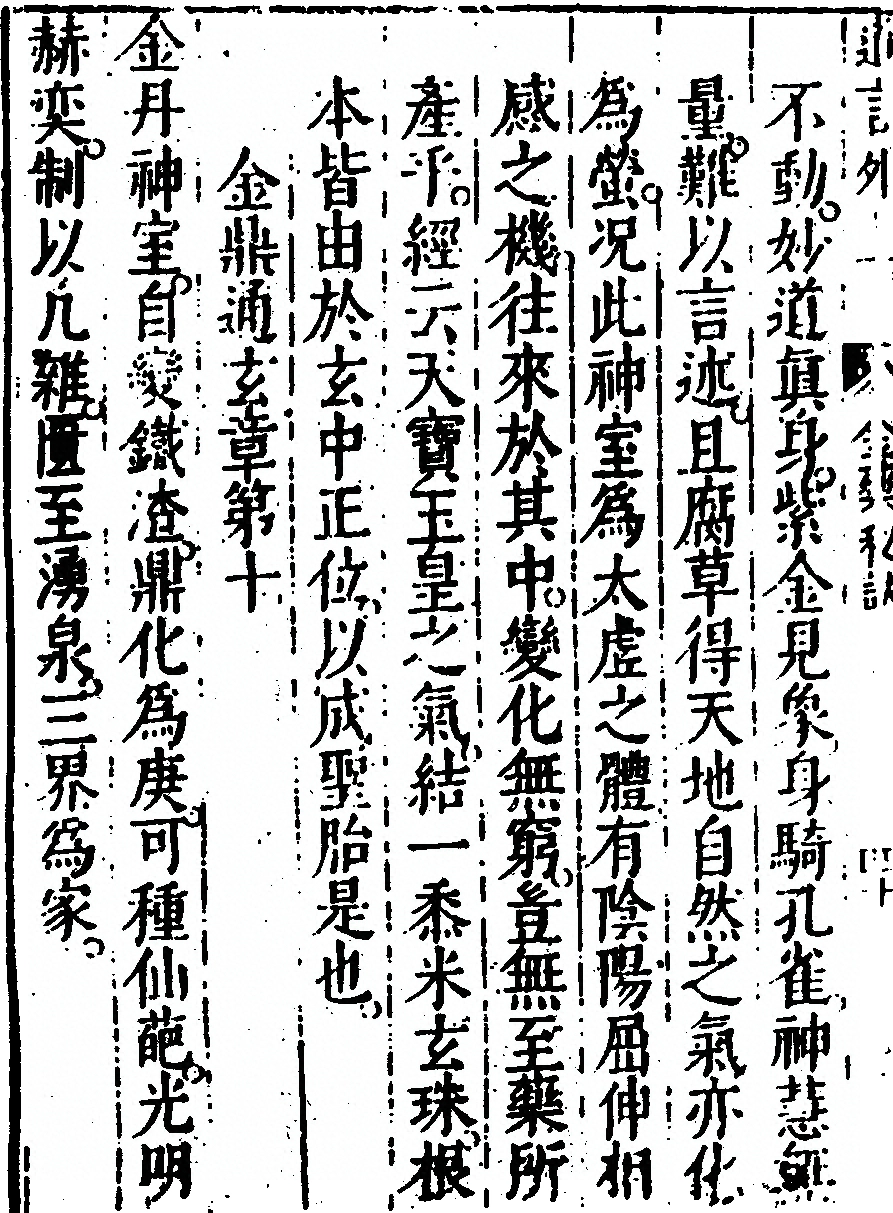 不動妙道真身紫金見象身騎孔雀神慧無
量難以言述且腐草得天地自然之氣亦化
為螢况此神室為太虛之體有陰陽屈伸相
感之機往來於其中變化無窮豈無至藥所
產乎經云天寶玉皇之氣結一黍米玄珠根
本皆由於玄中正位以成聖胎是也
金鼎通玄章第十
金丹神室自變鐵渣鼎化為庚可種仙葩光明
赫奕制以凢雜匱至湧泉三界為家